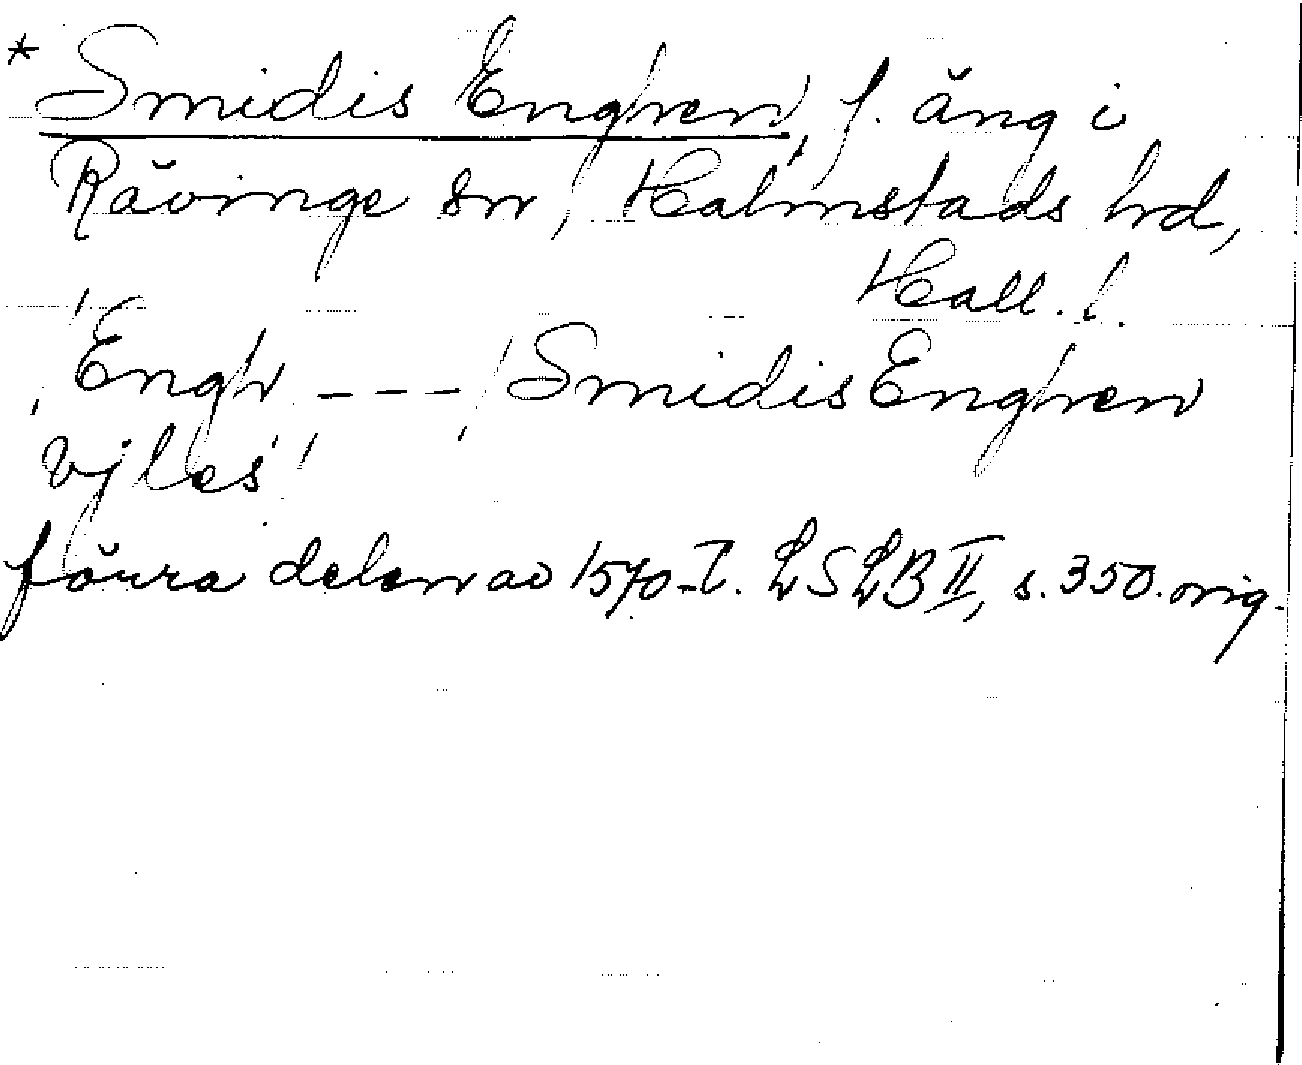 * Smidis Enghen, f. äng i
Rävinge sn, Halmstads hd,
Hall. l.
"Engh --- Smidis Enghen
vj les"
förra delen av 1570-t. LSLB II, s. 350. orig.